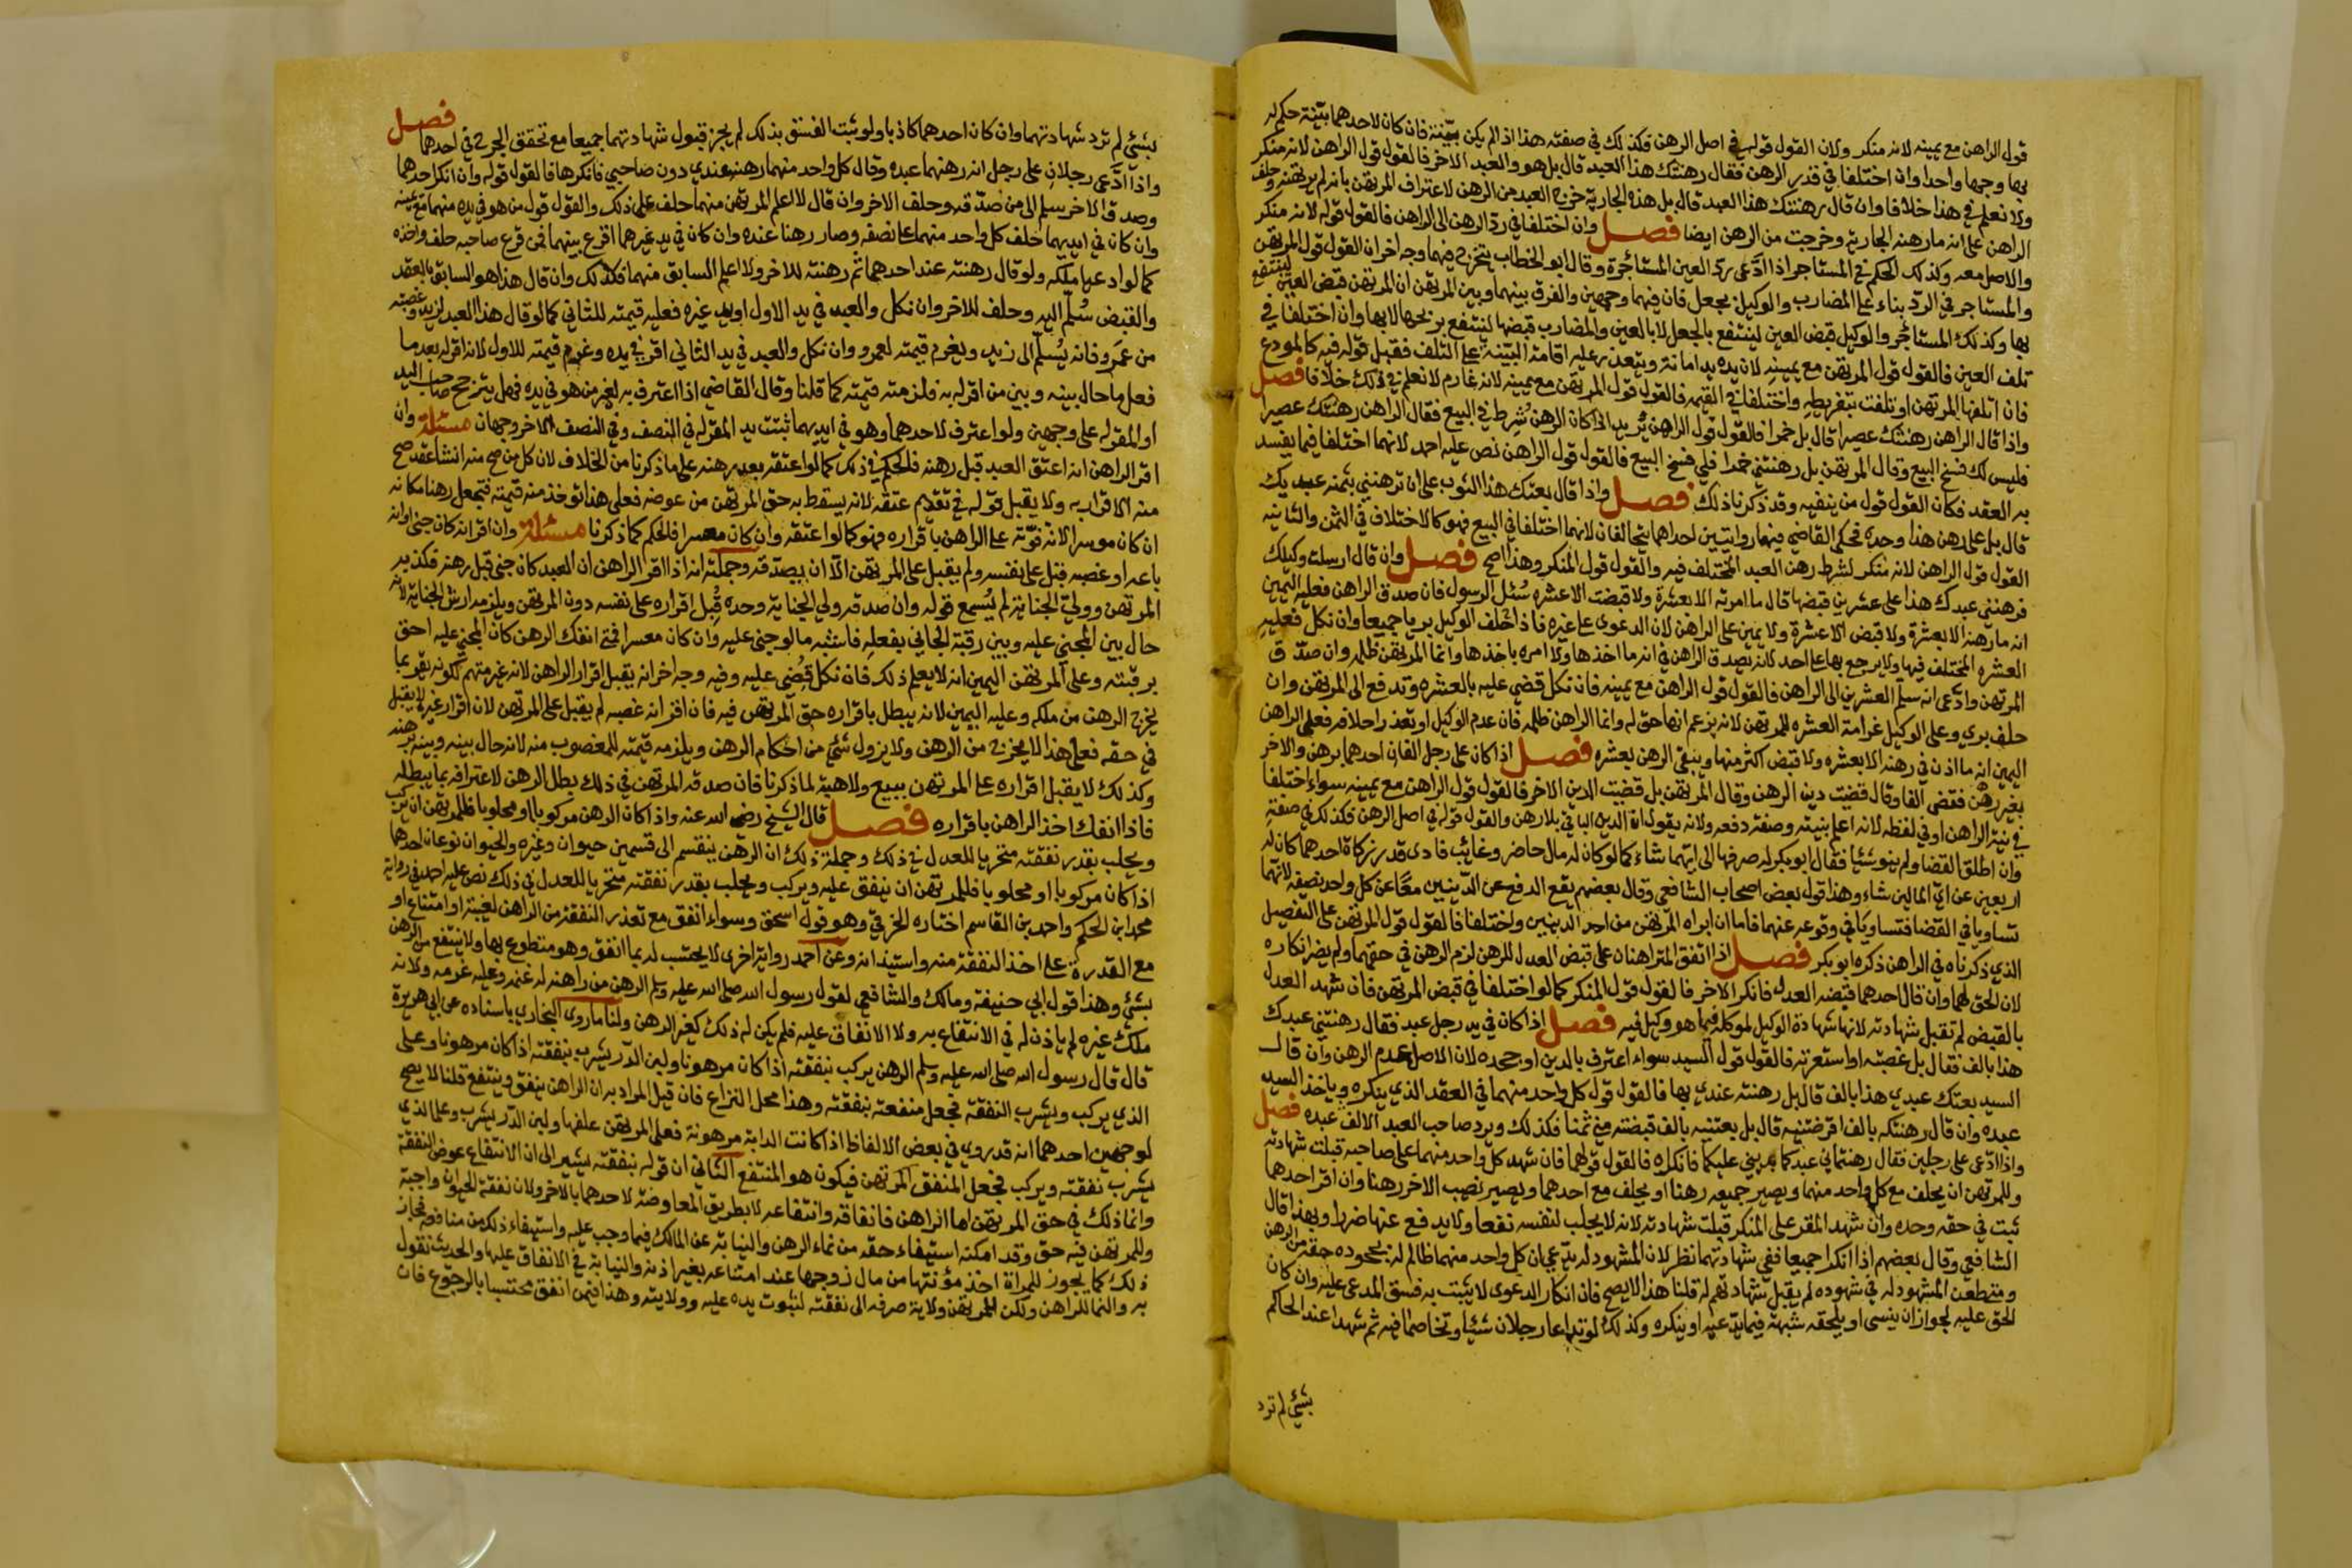 قول الراهن مع يمينه لانه منكر ولان القول قوله في اصل الرهن فكذلك في صفته هذا اذا لم يكن بينة فان كان لاحدهما بينة حكم له
بها وجها واحدا وان اختلفا في قدر الرهن فقال رهنتك هذا العبد قال بل هو والعبد الاخر فالقول قول الراهن لانه منكر
ولا نعلم في هذا خلافا وان قال رهنتك هذا العبد قال بل هذه الجارية خرج العبد من الرهن لاعتراف المرتهن بانه لم يرتهنه وحلف
الراهن على انه ما رهنه الجارية وخرجت من الرهن ايضا فصل وان اختلفا في رد الرهن الى الراهن فالقول قوله لانه منكر
والاصل معه وكذلك الحكم في المستاجر اذا ادّعى ردّ العين المستأجرة وقال ابو الخطاب يتخرج فيهما وجه اخر ان القول قول المرتهن
والمستاجر في الردّ بناء على المضارب والوكيل بجعل فان فيهما وجهين والفرق بينهما وبين المرتهن ان المرتهن قبض العين لينتفع
بها وكذلك المستاجر والوكيل قبض العين لينتفع بالجعل لا بالعين والمضارب قبضها لينتفع بربحها لا بها وان اختلفا في
تلف العين فالقول قول المرتهن مع يمينه لان يده يد امانة ويتعذر عليه اقامة البيّنة على التلف فقبل قوله فيه كالمودع
فان اتلفها المرتهن او تلفت بتفريطه واختلفا في القيمة فالقول قول المرتهن مع يمينه لانه غارم لا نعلم في ذلك خلافا فصل
واذا قال الراهن رهنتك عصيرا قال بل خمرا فالقول قول الراهن يريد اذا كان الرهن شُرط في البيع فقال الراهن رهنتك عصيرا
فليس لك فسخ البيع وقال المرتهن بل رهنتني خمرا فلي فسخ البيع فالقول قول الراهن نص عليه احمد لانهما اختلفا فيما يفسد
به العقد فكان القول قول من ينفيه وقد ذكرنا ذلك فصل واذا قال بعتك هذا الثوب على ان ترهنني بثمنه عبديك
قال بل على رهن هذا وحده فحكى القاضي فيها روايتين احداهما يتحالفان لانهما اختلفا في البيع فهو كالاختلاف في الثمن والثانية
القول قول الراهن لانه منكر لشرط رهن العبد المختلف فيه والقول قول المنكر وهذا اصح فصل وان قال ارسلت وكيلك
فرهنني عبدك هذا على عشرين قبضها قال ما امرته الا بعشرة ولا قبضت الا عشره سُئل الرسول فان صدق الراهن فعليه اليمين
انه ما رهنه الا بعشرة ولا قبض الا عشرة ولا يمين على الراهن لان الدعوى على غيره فاذا حلف الوكيل بريا جميعا وان نكل فعليه
العشره المختلف فيها ولا يرجع بها على احد لانه يصدق الراهن في انه ما اخذها ولا امره باخذها وانما المرتهن ظلمه وان صدّق
المرتهن وادّعى انه سلّم العشرين الى الراهن فالقول قول الراهن مع يمينه فان نكل قضي عليه بالعشره وتدفع الى المرتهن وان
حلف بري وعلى الوكيل غرامة العشره للمرتهن لانه يزعم انها حق له وانما الراهن ظلمه فان عدم الوكيل او تعذر احلافه فعلى الراهن
اليمين انه ما اذن في رهنه الا بعشره ولا قبض اكثر منها ويبقى الرهن بعشره فصل اذا كان على رجل الفان احدهما برهن والاخر
بغير رهن فقضى الفا وقال قضيت دين الرهن وقال المرتهن بل قضيت الدين الاخر فالقول قول الراهن مع يمينه سواء اختلفا
في نية الراهن او في لفظه لانه اعلم بنيته وصفة دفعه ولانه يقول ان الدين الباقي بلا رهن والقول قوله في اصل الرهن فكذلك في صفته
وان اطلق القضا ولم ينو شيئا فقال ابو بكر له صرفها الى ايهما شاء كما لو كان له مال حاضر وغائب فادى قدر زكاة احدهما كان له
ان يعين عن ايّ المالين شاء وهذا قول بعض اصحاب الشافعي وقال بعضهم يقع الدفع عن الدّينين معًا عن كل واحد نصفه لانهما
تساويا في القضا فتساويا في وقوعه عنهما فاما ان ابراه المرتهن من احد الدينين واختلفا فالقول قول المرتهن على التفصيل
الذي ذكرناه في الراهن ذكره ابو بكر فصل اذا اتفق المتراهنان على قبض العدل للرهن لزم الرهن في حقهما ولم يضر انكاره
لان الحق لهما وان قال احدهما قبضه العدل فانكر الاخر فالقول قول المنكر كما لو اختلفا في قبض المرتهن فان شهد العدل
بالقبض لم تقبل شهادته لانها شهادة الوكيل لموكله فيما هو وكيل فيه فصل اذا كان في يد رجل عبد فقال رهنتني عبدك
هذا بالف فقال بل غصبته او استعرته فالقول قول السيد سواء اعترف بالدين او جحده لان الاصل عدم الرهن وان قال
السيد بعتك عبدي هذا بالف قال بل رهنته عندي بها فالقول قول كل واحد منهما في العقد الذي ينكره وياخذ السيد
عبده وان قال رهنتكه بالف اقرضتنيه قال بل بعتنيه بالف قبضته مني ثمنا فكذلك ويرد صاحب العبد الالف عبده فصل
واذا ادّعى على رجلين فقال رهنتماني عبدكما بديني عليكما فانكراه فالقول قولهما فان شهد كل واحد منهما على صاحبه قبلت شهادته
وللمرتهن ان يحلف مع كل واحد منهما ويصير جميعه رهنا او يحلف مع احدهما ويصير نصيب الاخر رهنا وان اقر احدهما
ثبت في حقه وحده وان شهد المقر على المنكر قبلت شهادته لانه لا يجلب لنفسه نفعا ولا يدفع عنها ضررا وبهذا قال
الشافعي وقال بعضهم اذا انكرا جميعا ففي شهادتهما نظر لان المشهود له يدّعي ان كل واحد منهما ظالم له بجحوده حقه من الرهن
ومتى طعن المشهود له في شهوده لم يقبل شهادتهم له قلنا هذا لا يصح فان انكار الدعوى لا يثبت به فسق المدعى عليه وان كان
الحق عليه لجواز ان ينسى او يلحقه شبهة فيما يدّعيه او ينكره وكذلك لو تداعا رجلان شيئا وتخاصما فيه ثم شهدا عند الحاكم
بشئ لم ترد
بشئ لم ترد شهادتهما وان كان احدهما كاذبا ولو ثبت الفسق بذلك لم يجز قبول شهادتهما جميعا مع تحقق الجرح في احدهما فصل
واذا ادّعى رجلان على رجل انه رهنهما عبده وقال كل واحد منهما رهنه عندي دون صاحبي فانكرها فالقول قوله وان انكر احدهما
وصدق الاخر سلم الى من صدّقه وحلف الاخر وان قال لا اعلم المرتهن منهما حلف على ذلك والقول قول من هو في يده منهما مع يمينه
وان كان في ايديهما حلف كل واحد منهما على نصفه وصار رهنا عنده وان كان في يد غيرهما اقرع بينهما فمن قرع صاحبه حلف واخذه
كما لو ادعيا ملكه ولو قال رهنته عند احدهما ثم رهنته للاخر ولا اعلم السابق منهما فكذلك وان قال هذا هو السابق بالعقد
والقبض سُلّم اليه وحلف للاخر وان نكل والعبد في يد الاول او يد غيره فعليه قيمته للثاني كما لو قال هذا العبد لزيد وغصبته
من عمرو فانه يُسلّم الى زيد ويغرم قيمته لعمرو وان نكل والعبد في يد الثاني اقر في يده وغرم قيمته للاول لانه اقر له بعد ما
فعل ما حال بينه وبين من اقر له به فلزمته قيمته كما قلنا وقال القاضي اذا اعترف به لغير من هو في يده فهل يترجح صاحب اليد
او المقر له على وجهين ولو اعترف لاحدهما وهو في ايديهما ثبتت يد المقر له في النصف وفي النصف الاخر وجهان مسئلة وان
اقر الراهن انه اعتق العبد قبل رهنه فالحكم في ذلك كما لو اعتقه بعد رهنه على ما ذكرنا من الخلاف لان كل من صح منه انشا عقد صح
منه الاقرار به ولا يقبل قوله في تقديم عتقه لانه يسقط به حق المرتهن من عوضه فعلى هذا توخذ منه قيمته فتجعل رهنا مكانه
ان كان موسرا لانه فوّته على الراهن باقراره فهو كما لو اعتقه وان كان معسرا فالحكم كما ذكرنا مسئلة وان اقر انه كان جنى او انه
باعه او غصبه قبل على نفسه ولم يقبل على المرتهن الا ان يصدّقه وجملته انه اذا اقر الراهن ان العبد كان جنى قبل رهنه فكذبه
المرتهن ووليّ الجناية لم يُسمع قوله وان صدقه ولي الجناية وحده قُبل اقراره على نفسه دون المرتهن ويلزمه ارش الجناية لانه
حال بين المجني عليه وبين رقبة الجاني بفعله فاشبه ما لو جنى عليه وان كان معسرا فمتى انفك الرهن كان المجني عليه احق
برقبته وعلى المرتهن اليمين انه لا يعلم ذلك فان نكل قُضي عليه وفيه وجه اخر انه يقبل اقرار الراهن لانه غير متهم لكونه يقر بما
يخرج الرهن من ملكه وعليه اليمين لانه يبطل باقراره حق المرتهن فيه فان اقر انه غصبه لم يقبل على المرتهن لان اقرار غيره لا يقبل
في حقه فعلى هذا لا يخرج من الرهن ولا يزول شئ من احكام الرهن ويلزمه قيمته للمغصوب منه لانه حال بينه وبينه برهنه
وكذلك لا يقبل اقراره على المرتهن ببيع ولا هبة لما ذكرنا فان صدقه المرتهن في ذلك بطل الرهن لاعترافه بما يبطله
فاذا انفك اخذ الراهن باقراره فصل قال الشيخ رضي الله عنه واذا كان الرهن مركوبا او محلوبا فللمرتهن ان يركب
ويحلب بقدر نفقته متحريا للعدل في ذلك وجملة ذلك ان الرهن ينقسم الى قسمين حيوان وغيره والحيوان نوعان احدهما
اذا كان مركوبا او محلوبا فللمرتهن ان ينفق عليه ويركب ويحلب بقدر نفقته متحريا للعدل في ذلك نص عليه احمد في رواية
محمد ابن الحكم واحمد بن القاسم اختاره الخرقي وهو قول اسحق وسواء انفق مع تعذر النفقة من الراهن لغيبته او امتناع او
مع القدرة على اخذ النفقة منه واستيذانه وعن احمد رواية اخرى لا يحتسب له بما انفق وهو متطوع بها ولا ينتفع من الرهن
بشئ وهذا قول ابي حنيفة ومالك والشافعي لقول رسول الله صلى الله عليه وسلم الرهن من راهنه له غنمه وعليه غرمه ولانه
ملك غيره لم ياذن له في الانتفاع به ولا الانفاق عليه فلم يكن له ذلك كغير الرهن ولنا ما روى البخاري باسناده عن ابي هريرة
قال قال رسول الله صلى الله عليه وسلم الرهن يركب بنفقته اذا كان مرهونا ولبن الدّر يشرب بنفقته اذا كان مرهونا وعلى
الذي يركب ويشرب النفقة فجعل منفعته بنفقته وهذا محل النزاع فان قيل المراد به ان الراهن ينفق وينتفع قلنا لا يصح
لوجهين احدهما انه قد روي في بعض الالفاظ اذا كانت الدابة مرهونة فعلى المرتهن علفها ولبن الدّر يشرب وعلى الذي
يشرب نفقته ويركب فجعل المنفق المرتهن فيكون هو المنتفع الثاني ان قوله بنفقته يشير الى ان الانتفاع عوض النفقة
وانما ذلك في حق المرتهن اما الراهن فانفاقه وانتفاعه لا بطريق المعاوضة لاحدهما بالاخر ولان نفقة الحيوان واجبة
وللمرتهن فيه حق وقد امكنه استيفاء حقه من نماء الرهن والنيابة عن المالك فيما وجب عليه واستيفاء ذلك من منافعه فجاز
ذلك كما يجوز للمراة اخذ مؤنتها من مال زوجها عند امتناعه بغير اذنه والنيابة في الانفاق عليها والحديث نقول
به والنما للراهن ولكن للمرتهن ولاية صرفه الى نفقته لثبوت يده عليه وولايته وهذا فيمن انفق محتسبا بالرجوع فان